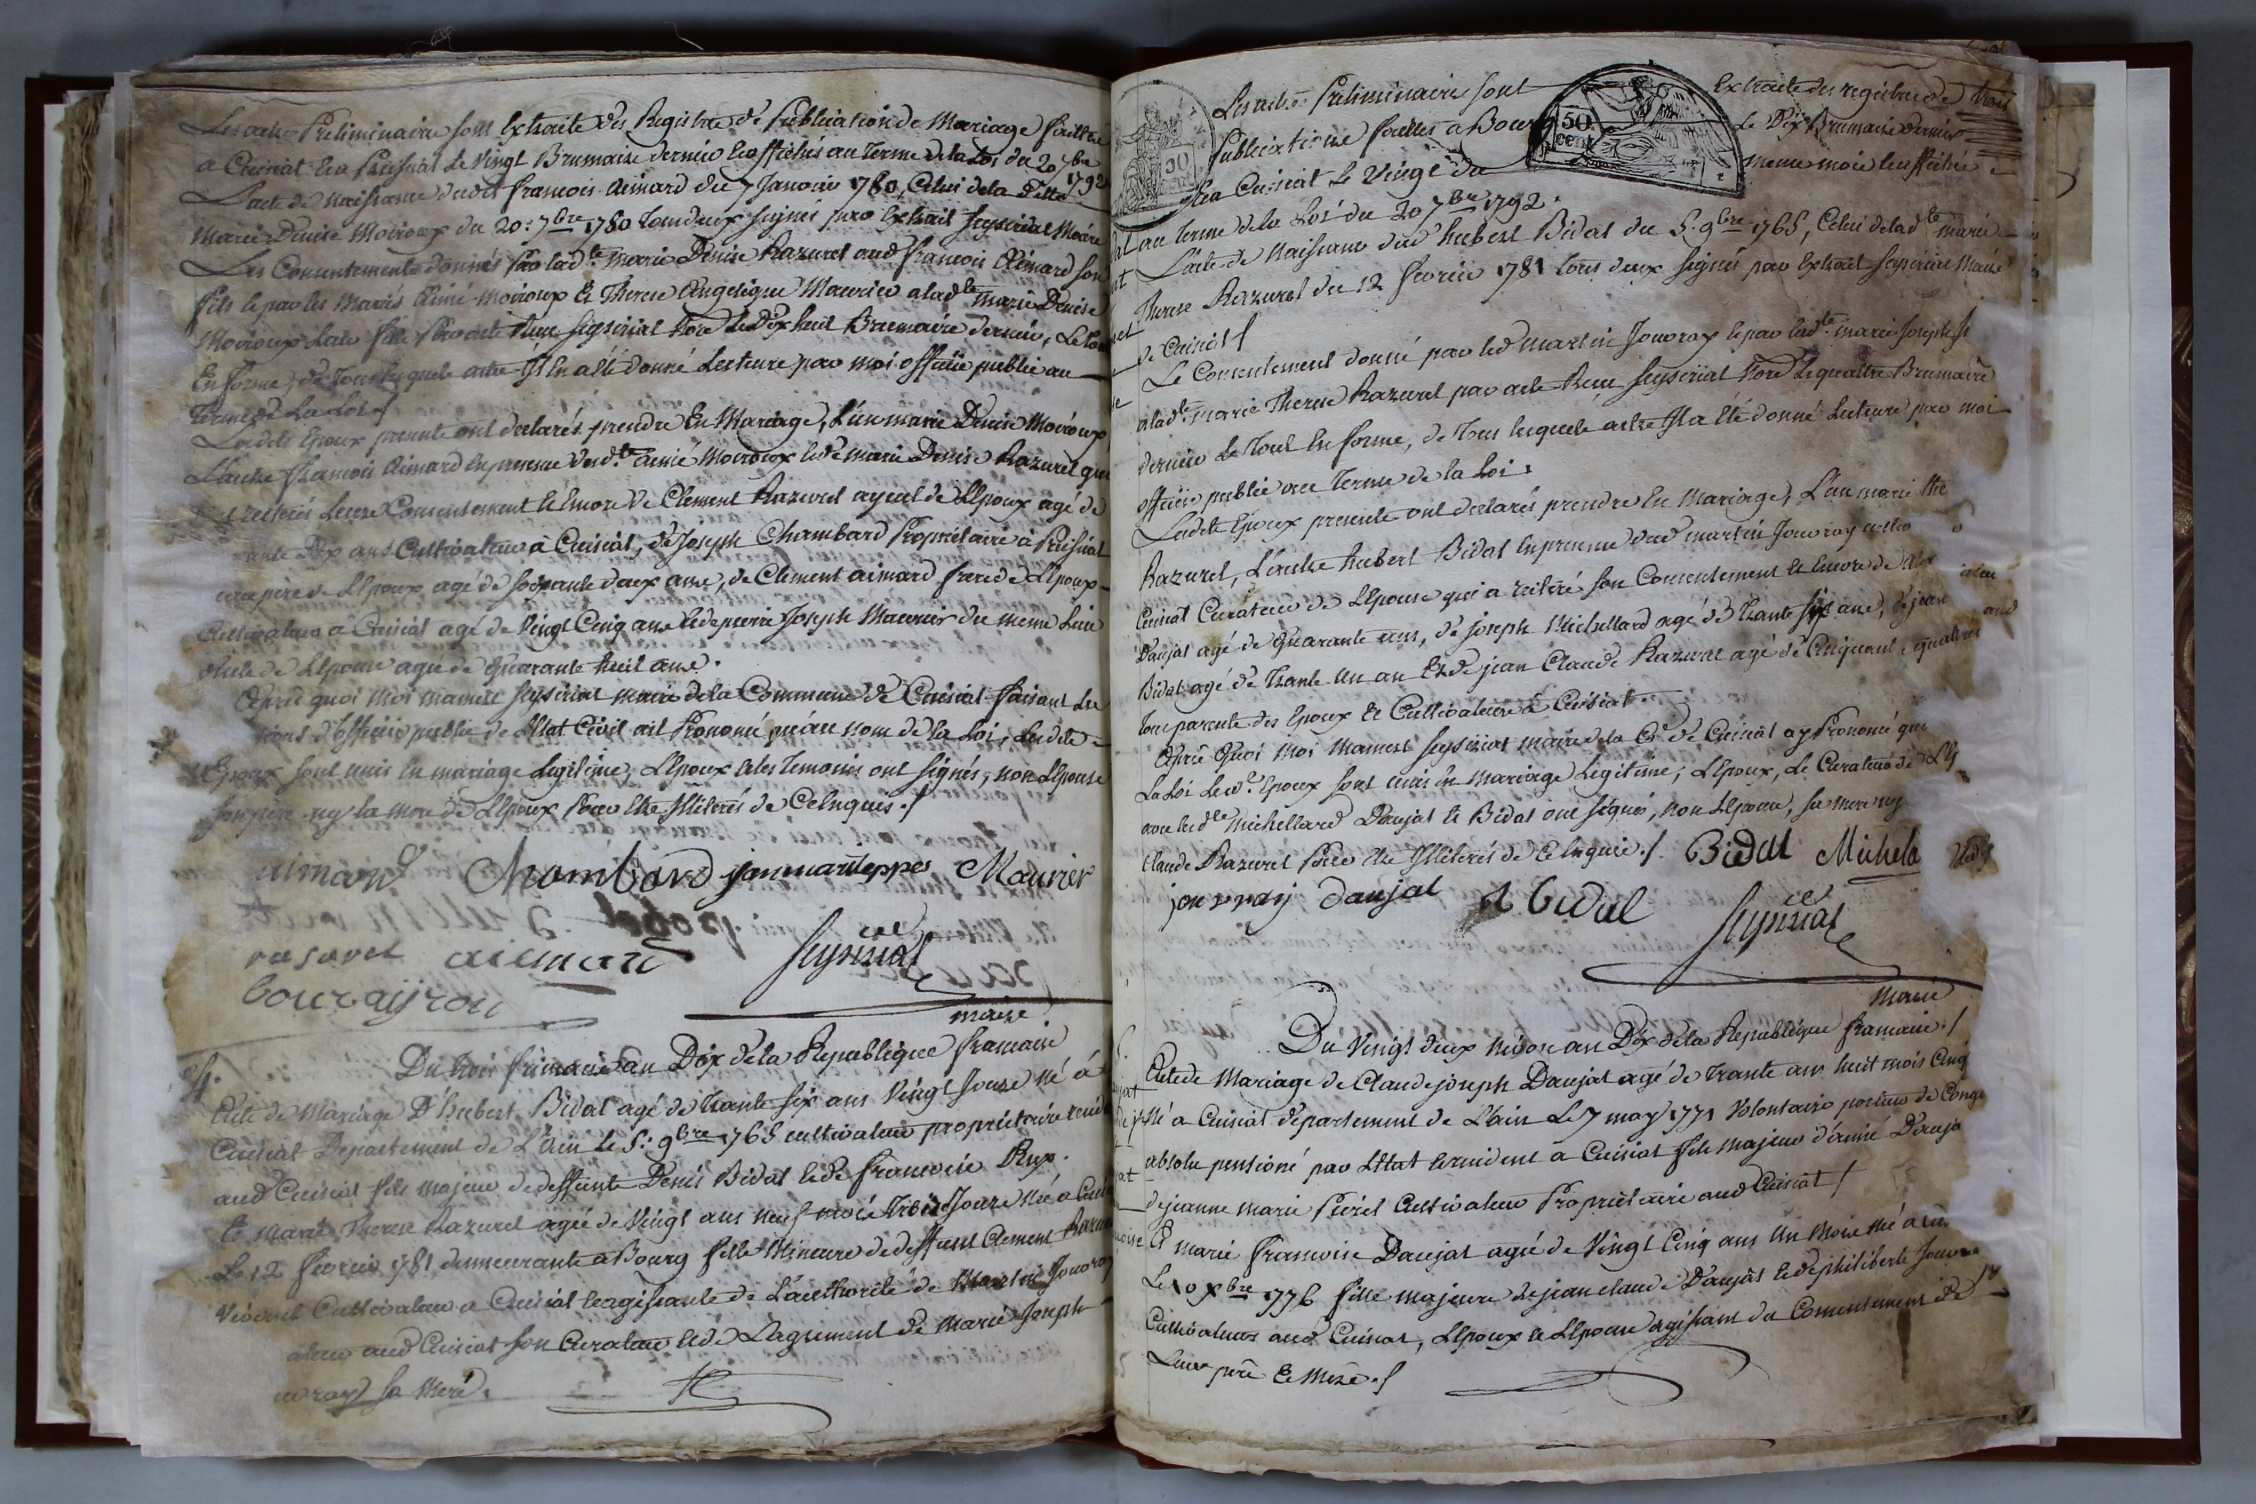 Les actes Preliminaire sont Extraite des Registre de Publication de Mariage faitte
a Cuisiat Et a Treffiat Le Vingt Brumaire dernier Et affichés au Terme de la Loi du 20 7bre 1792
L'acte de Naissance dudit francois Aimard du 7 Janvier 1780, Celui de la ditte
Marie Denise Moiroux du 20: 7bre 1780 Tous deux signés par Extrait Seyssiriat Maire
Les Consentements donnés par lad.te Marie Denise Razurel aud francois Aimard son
fils Et par les Mariés Aimé Moiroux Et Therese Angelique Maurier a lad.te Marie Denise
Moiroux Leur fille par acte Reçu Seyssiriat Nore Le Dix huit Brumaire dernier, Le tout
En forme, de Tous lesquels actes Il En a été donné Lecture par moi officier public au
Terme de La Loi /
Lesdits Epoux presents ont declarés prendre En Mariage, L'une marie Denise Moiroux
L'autre francois Aimard En presence dud.t Aimé Moiroux Et de marie Denise Razurel qui
reiterés Leurs Consentement Et Encore de Clement Razurel ayeul de L'Epoux agé de
ante Dix ans Cultivateur a Cuisiat, de Joseph Chambard Propriétaire a Treffiat
père de L'Epoux agé de soixante deux ans, de Clement aimard frere de L'Epoux
Cultivateur a Cuisiat agé de Vingt Cinq ans Et de pierre Joseph Maurier du meme Lieu
oncle de L'Epouse agé de Quarante huit ans.
Après quoi Moi Mamert Seyssiriat maire de la Commune de Cuisiat faisant Les
tions d'officier public de L'Etat Civil ait Prononcé qu'au nom de la Loi, Lesdits
Epoux sont unis En mariage Legitime, L'Epoux Et les Temoins ont signés, non L'Epouse
son père ny la mere de L'Epoux pour Etre Illiterés de Ce Enquis ./
aimard Chambard jan marit eppes Maurier
rasurel aiemard Seyssiriat
bouraijron maire
Du trois frimaire an Dix de la Republique francaise
Acte de Mariage D'hubert Bidat agé de trante six ans Vingt Jours Né a
Cuisiat Departement de L'Ain Le 5: 9bre 1765 cultivateur propriétaire
aud Cuisiat fils majeur de deffunt Denis Bidat Et de francoise Rup.
Et marie Therese Razurel agée de Vingt ans Neuf mois Trois Jours Née a
Le 12 fevrier 1781 demeurante a Bourg fille Mineure de deffunt Clement
Vivant Cultivateur a Cuisiat Et agissante de L'authorité de Martin Jouvray
ateur aud Cuisiat son Curateur Et de L'agrement de Marie Joseph
ouvray sa Mere.
Les actes Preliminaire sont Extraite des registre de trois
Publications faittes a Bourg Le Dix Brumaire dernier
Et a Cuisiat Le Vingt du meme mois Et affichée
au Terme de la Loi du 20 7bre 1792.
L'acte de Naissance dud hubert Bidat du 5: 9bre 1765, Celui de lad.te marie
Therese Razurel du 12 fevrier 1781 tous deux signés par Extrait Seyssiriat Maire
de Cuisiat /
Le Consentement donné par led martin Jouvray Et par lad.te marie Joseph
a lad.te marie Therese Razurel par acte Reçu Seyssiriat Nore Le quattre Brumaire
dernier Le Tout En forme, de Tous lesquels actes Il a été donné Lecture par moi
officier public au Terme de la Loi.
Lesdits Epoux presents ont declarés prendre En Mariage, L'une marie The
Razurel, L'autre hubert Bidat En presence dud martin Jouvray
Cuisiat Curateur de L'Epouse qui a reiteré son Consentement Et Encore de
Daujat agé de Quarante ans, de joseph Michellard agé de Trante six ans, De jean
Bidat agé de Trante un an Et de jean Claude Razurel agé de Cinquante quattre ans
Tous parents des Epoux Et Cultivateurs a Cuisiat.
Après Quoi Moi Mamert Seyssiriat maire de la Cne de Cuisiat ay Prononcé que
La Loi Lesd.ts Epoux sont unis En Mariage Legitime; L'Epoux, Le Curateur de L'Ep
avec lesd.ts Michellard Daujat Et Bidat ont signés, non L'Epouse, sa mere ny
Claude Razurel pour Etre Illiterés de Ce Enquis ./. Bidat Michela
jouvray daujat Bidal Seyssiriat
Maire
Du Vingt deux Nivose an Dix de la Republique francaise ./
Acte de Mariage de Claude joseph Daujat agé de Trante ans huit mois Cinq
Né a Cuisiat departement de L'ain Le 7 may 1771 Volontaire porteur de Congé
absolu pensioné par L'Etat Et resident a Cuisiat fils majeur d'aimé Daujat
de jeanne marie Peirel Cultivateur Propriétaire aud Cuisiat /
Et marie francoise Daujat agée de Vingt Cinq ans Un Mois Née a
Le 10 Xbre 1776 fille majeure de jean claude Daujat Et de philiberte Jouvray
Cultivateurs aud Cuisiat, L'Epoux Et L'Epouse agissant du Consentement de
Leurs père Et Mere ./